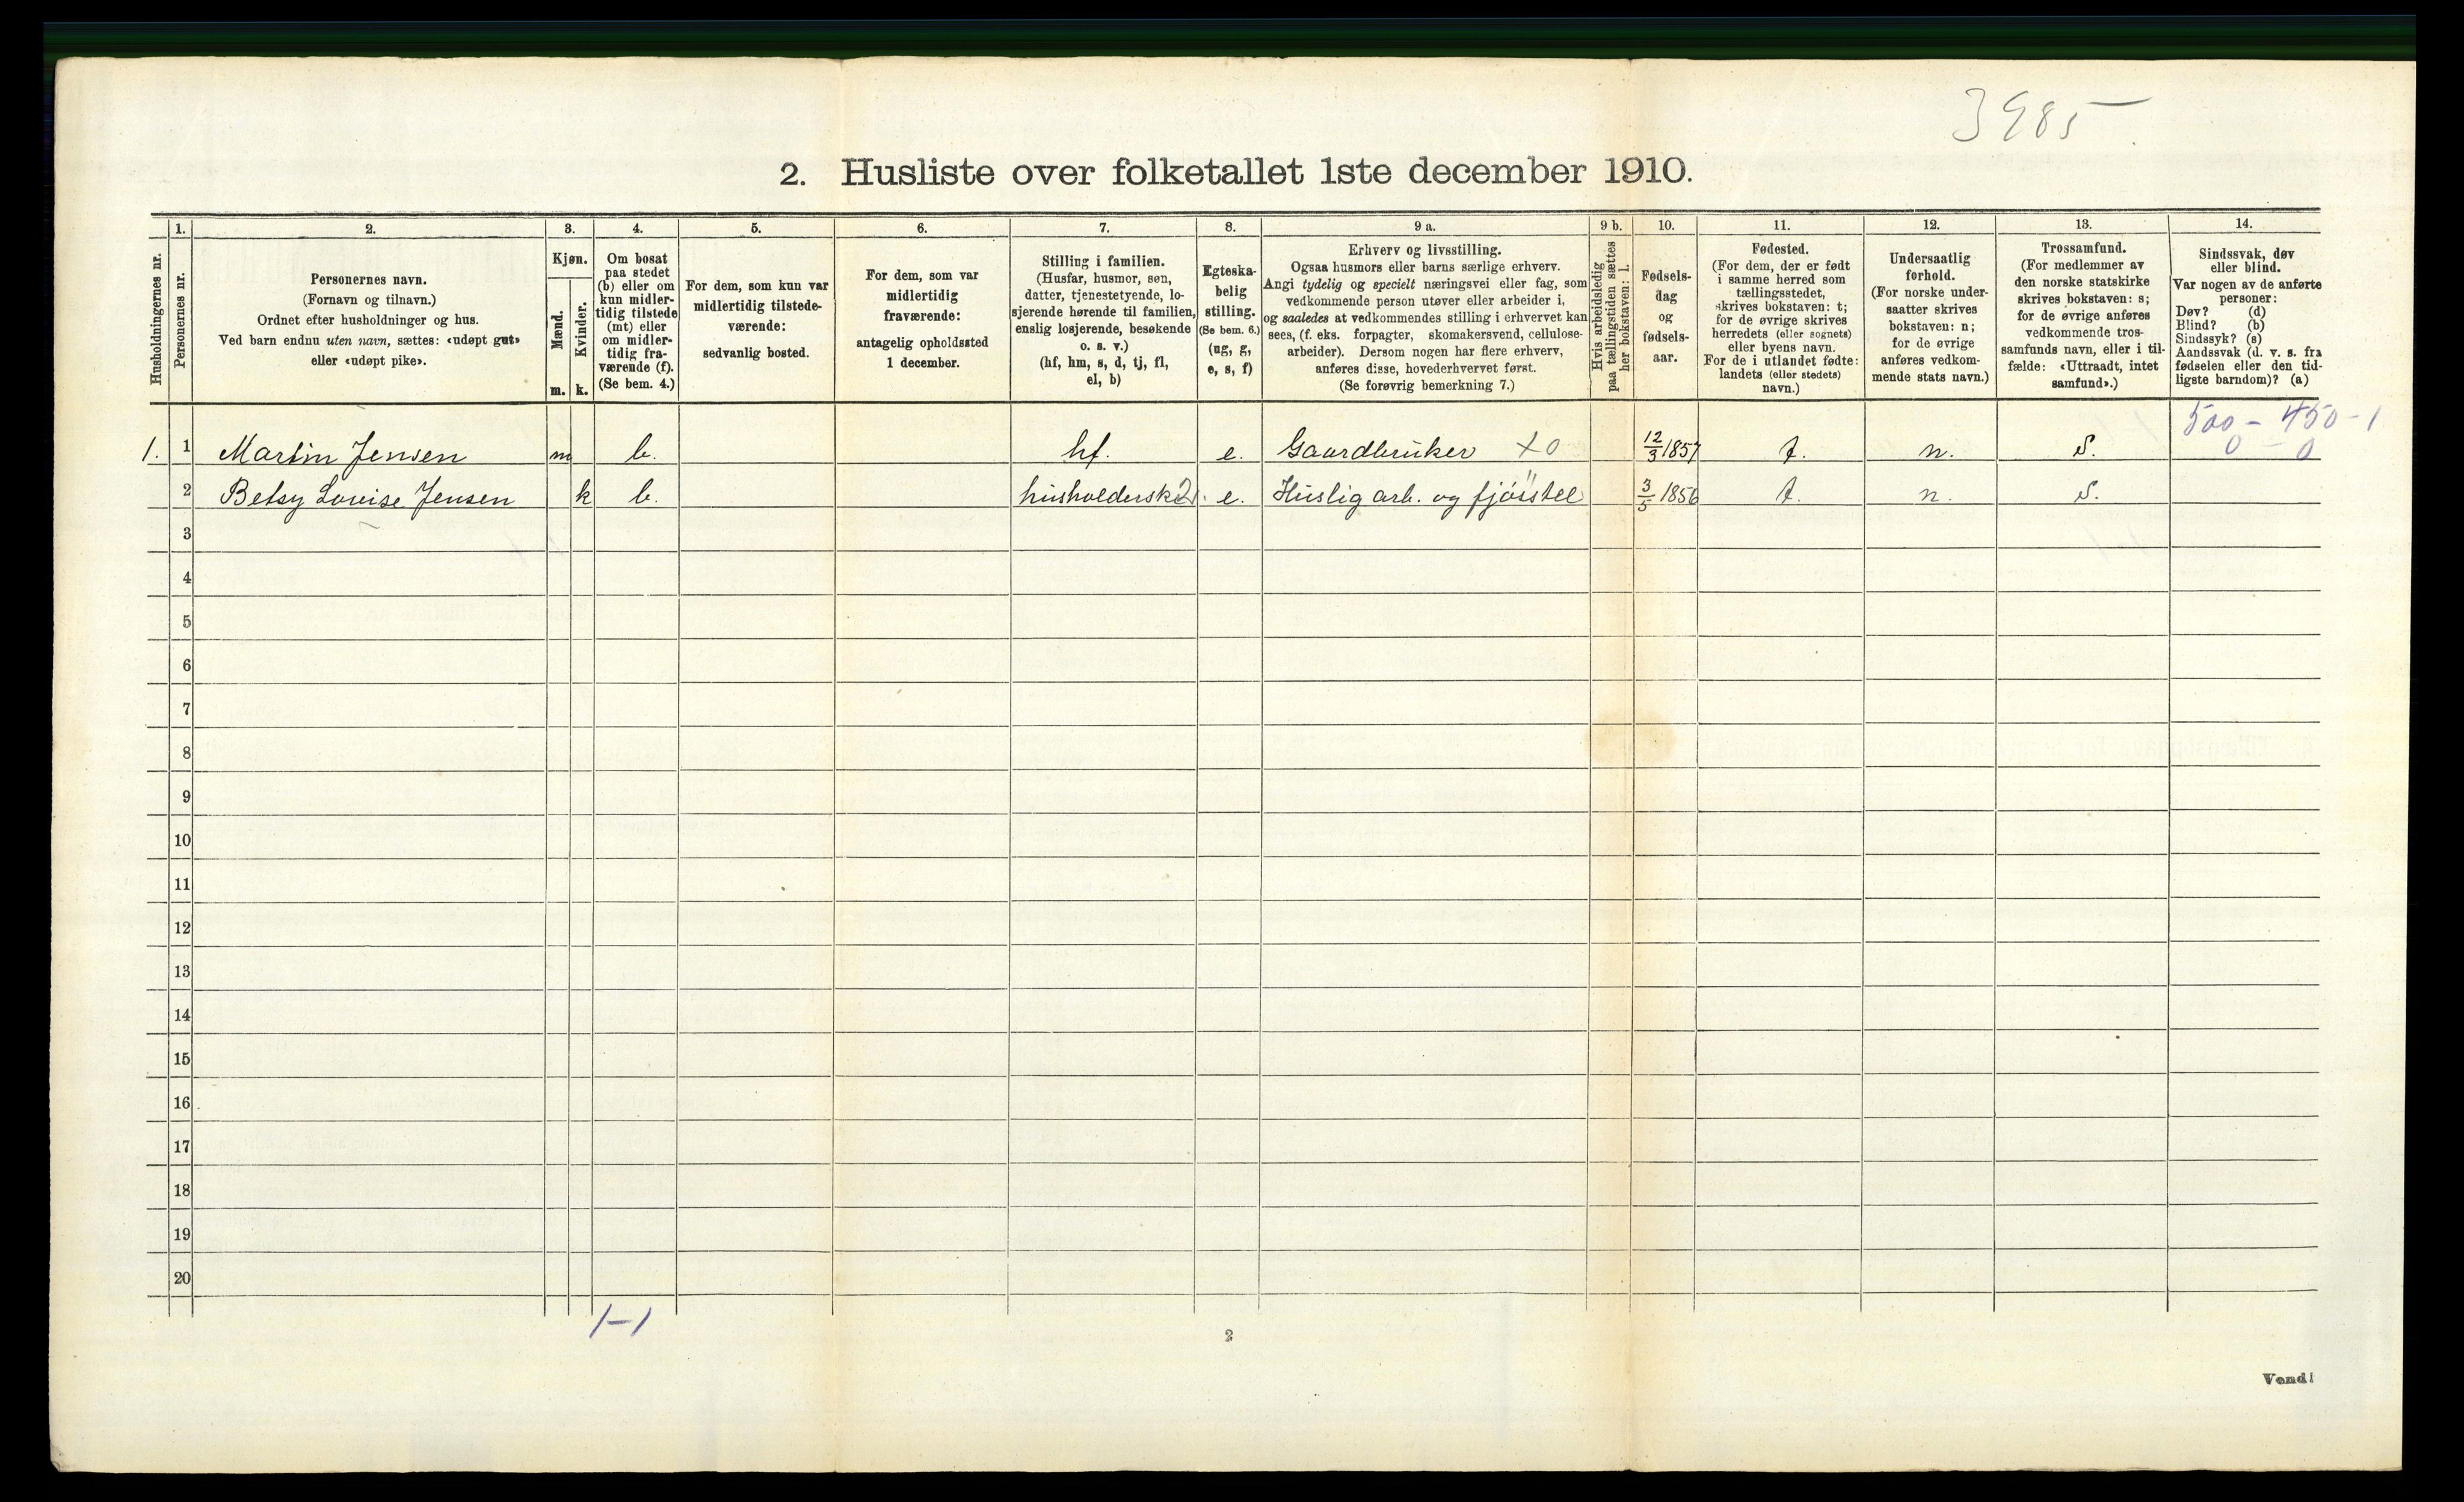 3985
2. Husliste over folketallet 1ste december 1910.
Husholdningernes nr.
1.
Personernes nr.
2.
Personernes navn.
(Fornavn og tilnavn.)
Ordnet efter husholdninger og hus.
Ved barn endnu uten navn, sættes: «udøpt gut»
eller «udøpt pike».
3.
Kjøn.
Mænd.
m.
Kvinder.
k.
4.
Om bosat
paa stedet
(b) eller om
kun midler-
tidig tilstede
(mt) eller
om midler-
tidig fra-
værende (f).
(Se bem. 4.)
5.
For dem, som kun var
midlertidig tilstede-
værende:
sedvanlig bosted.
6.
For dem, som var
midlertidig
fraværende:
antagelig opholdssted
1 december.
7.
Stilling i familien.
(Husfar, husmor, søn,
datter, tjenestetyende, lo-
sjerende hørende til familien,
enslig losjerende, besøkende
o. s. v.)
(hf, hm, s, d, tj, fl,
el, b)
8.
Egteska-
belig
stilling.
(Se bem. 6.)
(ug, g,
e, s, f)
9 a.
Erhverv og livsstilling.
Ogsaa husmors eller barns særlige erhverv.
Angi tydelig og specielt næringsvei eller fag, som
vedkommende person utøver eller arbeider i,
og saaledes at vedkommendes stilling i erhvervet kan
sees, (f. eks. forpagter, skomakersvend, cellulose-
arbeider). Dersom nogen har flere erhverv,
anføres disse, hovederhvervet først.
(Se forøvrig bemerkning 7.)
9 b.
Hvis arbeidsledig
paa tællingstiden sættes
her bokstaven: l.
10.
Fødsels-
dag
og
fødsels-
aar.
11.
Fødested.
(For dem, der er født
i samme herred som
tællingsstedet,
skrives bokstaven: t;
for de øvrige skrives
herredets (eller sognets)
eller byens navn.
For de i utlandet fødte:
landets (eller stedets)
navn.)
12.
Undersaatlig
forhold.
(For norske under-
saatter skrives
bokstaven: n;
for de øvrige
anføres vedkom-
mende stats navn.)
13.
Trossamfund.
(For medlemmer av
den norske statskirke
skrives bokstaven: s;
for de øvrige anføres
vedkommende tros-
samfunds navn, eller i til-
fælde: «Uttraadt, intet
samfund».)
14.
Sindssvak, døv
eller blind.
Var nogen av de anførte
personer:
Døv? (d)
Blind? (b)
Sindssyk? (s)
Aandssvak (d. v. s. fra
fødselen eller den tid-
ligste barndom)? (a)
500 - 450 - 1
0 - 0
1. 1 Martin Jensen m b. hf. e. Gaardbruker X0 12/3 1857 t. n. S.
2 Betsy Lovise Jensen k b. e. Huslig arb. og fjøsstel 3/5 1856 t. n. S.
3
4
5
6
7
8
9
10
11
12
13
14
15
16
17
18
19
20
1-1
2
Vend!